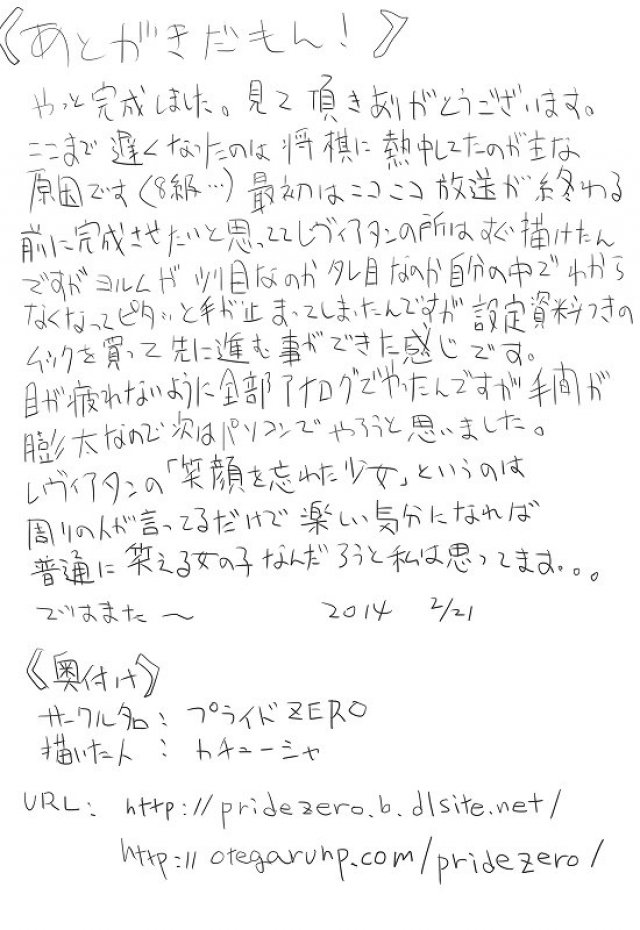 《あとがきだもん!》
やっと完成しました。見て頂きありがとうございます。
ここまで遅くなったのは将棋に熱中してたのが主な
原因です(8級…)最初はニコニコ放送が終わる
前に完成させたいと思っててレヴィアタンの所はすぐ描けたん
ですがヨルムがツリ目なのかタレ目なのか自分の中でわから
なくなってピタッと手が止まってしまったんですが設定資料つきの
ムックを買って先に進む事ができた感じです。
目が疲れないように全部アナログでやったんですが手間が
膨大なので次はパソコンでやろうと思いました。
レヴィアタンの「笑顔を忘れた少女」というのは
周りの人が言ってるだけで楽しい気分になれば
普通に笑える女の子なんだろうと私は思ってます...
ではまた〜 2014 2/21
《奥付け》
サークル名: プライドZERO
描いた人: カチューシャ
URL: http://pridezero.b.dlsite.net/
http://otegaruhp.com/pridezero/